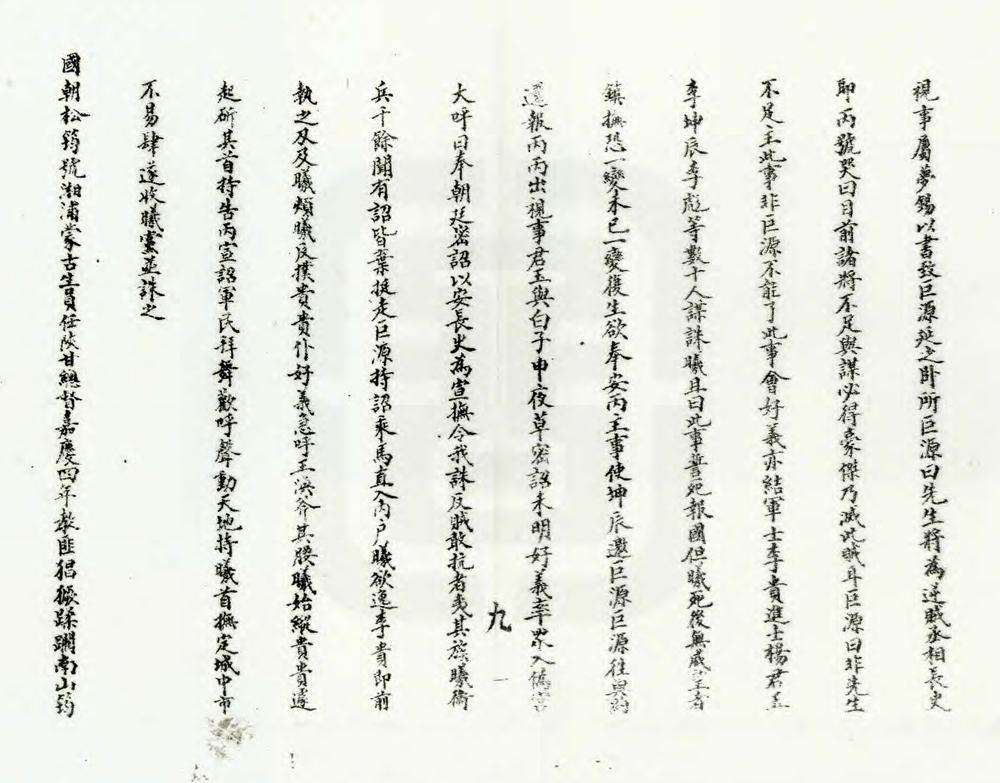 視事屬夢錫以書致巨源延之卧所巨源曰先生將為逆賊丞相長史
即丙號哭曰目前諸將不足與謀必得豪傑乃滅此賊耳巨源曰非先生
不足主此事非巨源不能了此事會好義亦結軍士李貴進士楊君玉
李坤辰李彪等數十人謀誅曦且曰此事誓死報國但曦死後無威望者
鎮撫恐一變未已一變復生欲奉安丙主事使坤辰邀巨源巨源往與約
還報丙丙出視事君玉與白子申夜草密詔未明好義率眾入偽宮
大呼曰奉朝廷密詔以安長史為宣撫令我誅反賊敢抗者夷其族曦衛
兵千餘聞有詔皆棄挺走巨源持詔乘馬直入內户曦欲逸李貴即前
執之刄及曦頰曦反撲貴貴仆好義急呼王渙斧其腰曦始縱貴貴遂
起斫其首持告丙宣詔軍民拜舞歡呼聲動天地持曦首撫定城中市
不易肆遂收曦黨並誅之
國朝松筠號湘浦蒙古生員任陝甘總督嘉慶四年教匪猖獗蹂躪南山筠
九